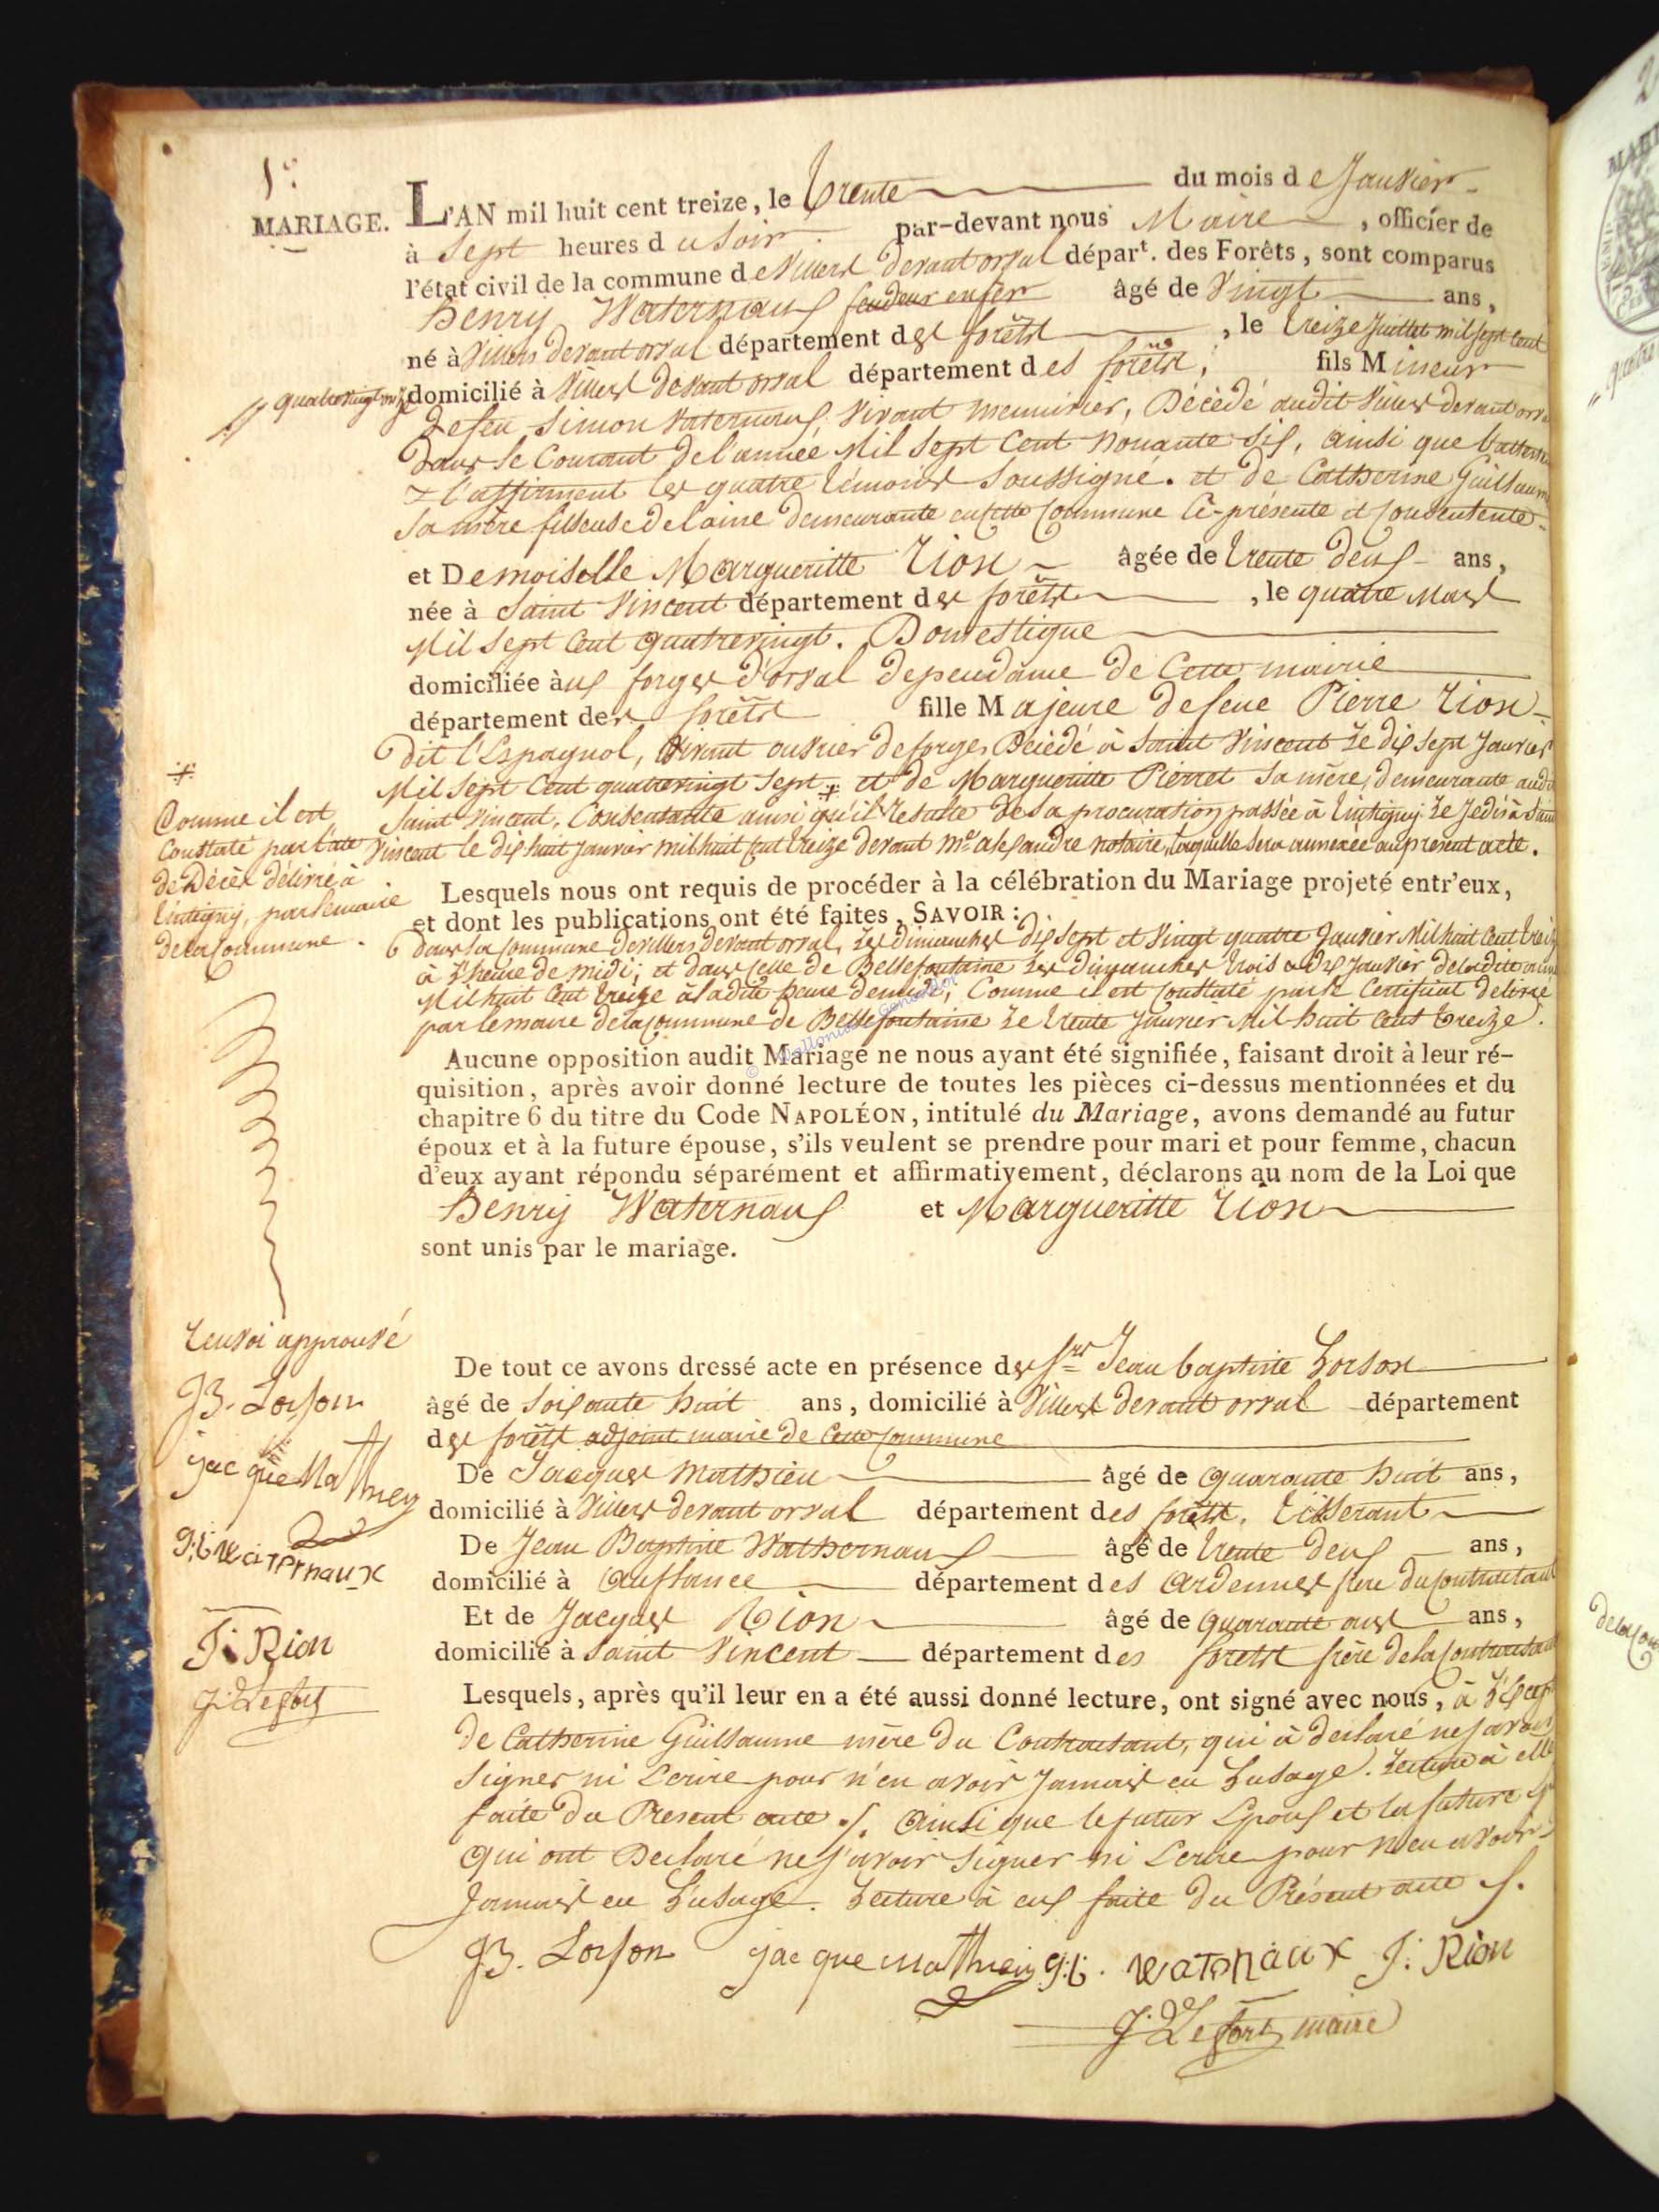 1er
MARIAGE.
L'AN mil huit cent treize, le trente du mois de Janvier
à Sept heures du Soir par-devant nous Maire, officier de
l'état civil de la commune de Villers devant orval départ. des Forêts, sont comparus
Henry Waternaux fendeur en fer âgé de Vingt ans,
né à Villers devant orval département des forêts, le treize Juillet mil sept cent
quatrevingt
domicilié à Villers devant orval département des forêts, fils Mineur
De feu Simon Waternaux, Vivant meunier, Décédé audit Villers devant
Dans le Courant de l'année Mil Sept Cent Nonante Six, ainsi que
l'affirment les quatre témoins Soussigné. et de Catherine Guillaume
Sa mère filleuse de laine demeurante en cette Commune Ci-présente et Consentente
et Demoiselle Margueritte Rion âgée de trente deux ans,
née à Saint Vincent département des forêts, le quatre Mars
Mil Sept Cent quatrevingt. Domestique
domiciliée aux forges d'orval dependame de Cette mairie
département des forêts fille Majeure de feue Pierre Rion
dit l'Espagnol, Vivant ouvrier de forges Décédé à Saint Vincent Le dix Sept Janvier
Mil Sept Cent quatrevingt Sept ⁜ et de Margueritte Pierret Sa mère, demeurante
Saint Vincent, Consentante ainsi qu'il resulte de Sa procuration passée à tintigny Le Jedis à
Vincent le dix huit Janvier mil huit Cent treize devant Me. alexandre notaire, laquelle Sera annexée au présent acte.
⁜
Comme il est
Constaté par l'acte
de Décès délivré à
tintigny, par le maire
de la Commune.
Lesquels nous ont requis de procéder à la célébration du Mariage projeté entr'eux,
et dont les publications ont été faites, SAVOIR :
dans la Commune de villers devant orval, Les dimanches dix sept et Vingt quatre Janvier Mil huit Cent treize
à l'heure de midi; et dans Celle de Bellefontaine Les dimanches trois & dix Janvier de ladite
Mil huit Cent treize à la dite heure de midi, Comme il est Constaté par le Certificat délivré
par le maire de la Commune de Bellefontaine Le trente Janvier Mil huit Cent treize.
Aucune opposition audit Mariage ne nous ayant été signifiée, faisant droit à leur ré-
quisition, après avoir donné lecture de toutes les pièces ci-dessus mentionnées et du
chapitre 6 du titre du Code NAPOLÉON, intitulé du Mariage, avons demandé au futur
époux et à la future épouse, s'ils veulent se prendre pour mari et pour femme, chacun
d'eux ayant répondu séparément et affirmativement, déclarons au nom de la Loi que
Henry Waternaux et Margueritte Rion
sont unis par le mariage.
Renvoi approuvé
JB. Lorson
jacque Mathieu
J:b Waternaux
J: Rion
J: Lefort
De tout ce avons dressé acte en présence des Srs Jean baptiste Lorson
âgé de Soixante huit ans, domicilié à Villers devant orval département
des forêts adjoint maire de Cette Commune
De Jacques Mathieu âgé de quarante huit ans,
domicilié à Villers devant orval département des forêts, tisserant
De Jean Baptiste Wathernaux âgé de trente deux ans,
domicilié à Auflance département des Ardennes frère du Contractant
Et de Jacques Rion âgé de quarante ans,
domicilié à Saint Vincent département des forêts frère de la Contractante
Lesquels, après qu'il leur en a été aussi donné lecture, ont signé avec nous, à
de Catherine Guillaume mère du Contractant, qui à déclaré ne Savoir
Signer ni Ecrire pour n'en avoir Jamais eu L'usage. Lecture à elle
faite du Présent acte ./. Ainsi que le futur Epoux et la future
qui ont Déclaré ne Savoir Signer ni Ecrire pour n'en avoir
Jamais eu L'usage. Lecture à eux faite du Présent acte ./.
JB. Lorson jacque Mathieu J:b. Waternaux J: Rion
J: Lefort maire